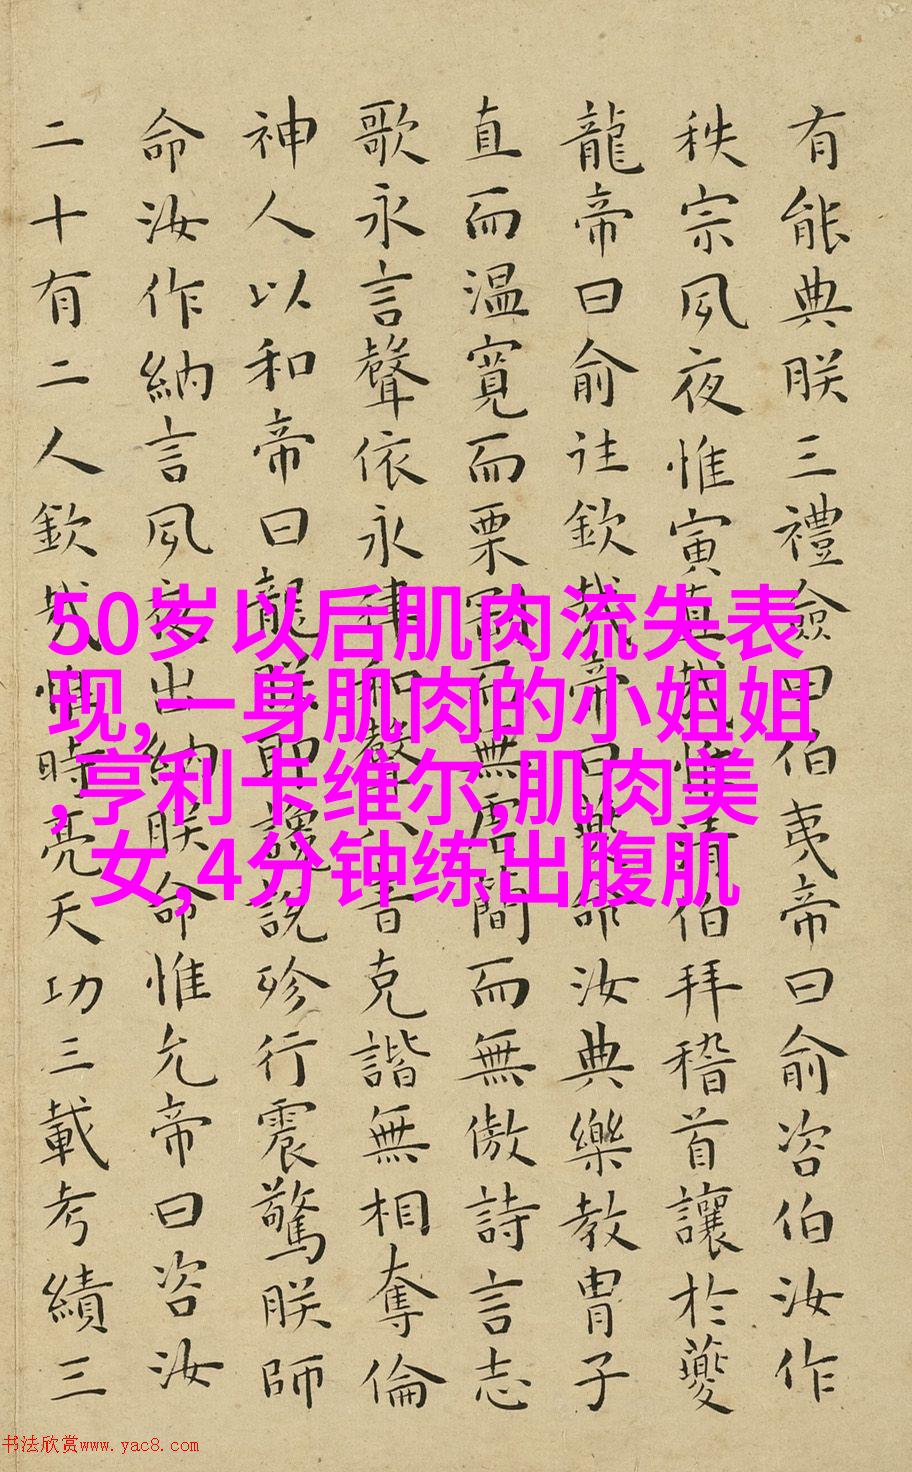 有能典朕三禮僉曰伯夷帝曰俞咨伯汝作
秩宗夙夜惟寅直哉惟清伯拜稽首讓於夔
龍帝曰俞往欽哉帝曰夔命汝典樂教胄子
直而温寬而栗剛而無虐簡而無傲詩言志
歌永言聲依永律和聲八音克諧無相奪倫
神人以和帝曰龍朕堲讒說殄行震驚朕師
命汝作納言夙夜出納朕命惟允帝曰咨汝
二十有二人欽哉惟時亮天功三載考績三
50岁以后肌肉流失表
现,一身肌肉的小姐姐
,亨利卡维尔,肌肉美
女,4分钟练出腹肌
书法欣赏www.yac8.com